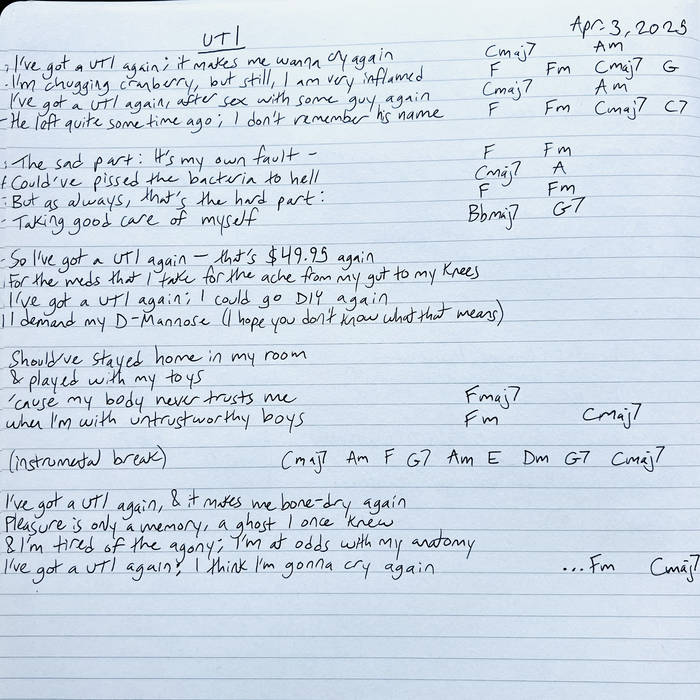 UTI
Apr. 3, 2025
I've got a UTI again; it makes me wanna cry again Cmaj7 Am
I'm chugging cranberry, but still, I am very inflamed F Fm Cmaj7 G
I've got a UTI again, after sex with some guy again Cmaj7 Am
He left quite some time ago; I don't remember his name F Fm Cmaj7 C7
The sad part: It's my own fault - F Fm
Could've pissed the bacteria to hell Cmaj7 A
But as always, that's the hard part: F Fm
Taking good care of myself Bbmaj7 G7
So I've got a UTI again - that's $49.95 again
For the meds that I take for the ache from my gut to my knees
I've got a UTI again; I could go DIY again
I demand my D-Mannose (I hope you don't know what that means)
Should've stayed home in my room
& played with my toys
'cause my body never trusts me Fmaj7
when I'm with untrustworthy boys Fm Cmaj7
(instrumental break) Cmaj7 Am F G7 Am E Dm G7 Cmaj7
I've got a UTI again, & it makes me bone-dry again
Pleasure is only a memory, a ghost I once knew
& I'm tired of the agony; I'm at odds with my anatomy
I've got a UTI again; I think I'm gonna cry again ...Fm Cmaj7